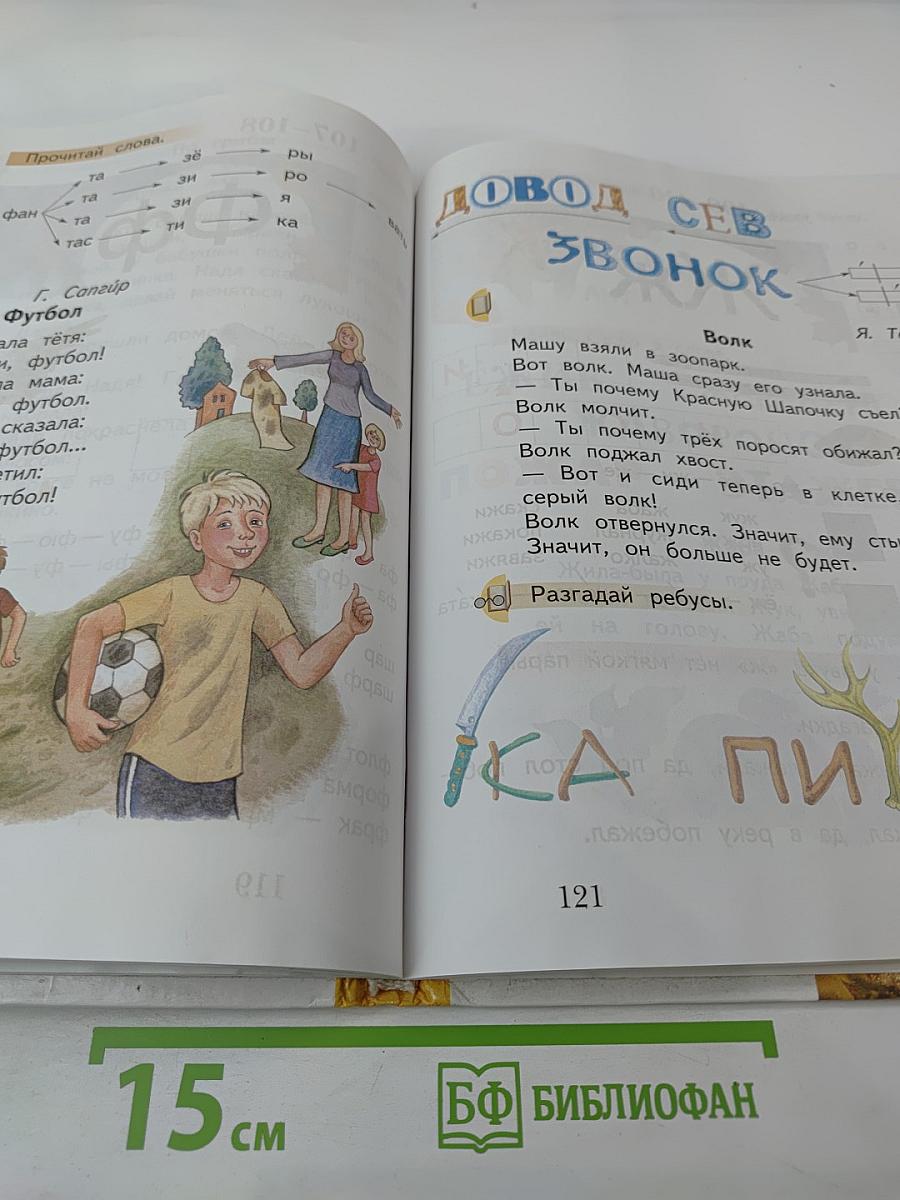 Прочитай слова.
фан
та зё ры
та зи ро вать
та зи я
тас ти ка
Г. Сапгир
Футбол
тётя:
футбол!
мама:
футбол.
сказала:
футбол...
ДОВОД СЕВ
ЗВОНОК
Я.
Волк
Машу взяли в зоопарк.
Вот волк. Маша сразу его узнала.
— Ты почему Красную Шапочку съел
Волк молчит.
— Ты почему трёх поросят обижал?
Волк поджал хвост.
— Вот и сиди теперь в клетке
серый волк!
Волк отвернулся. Значит, ему
Значит, он больше не будет.
Разгадай ребусы.
КА ПИ
119
121
15 см
БФ БИБЛИОФАН